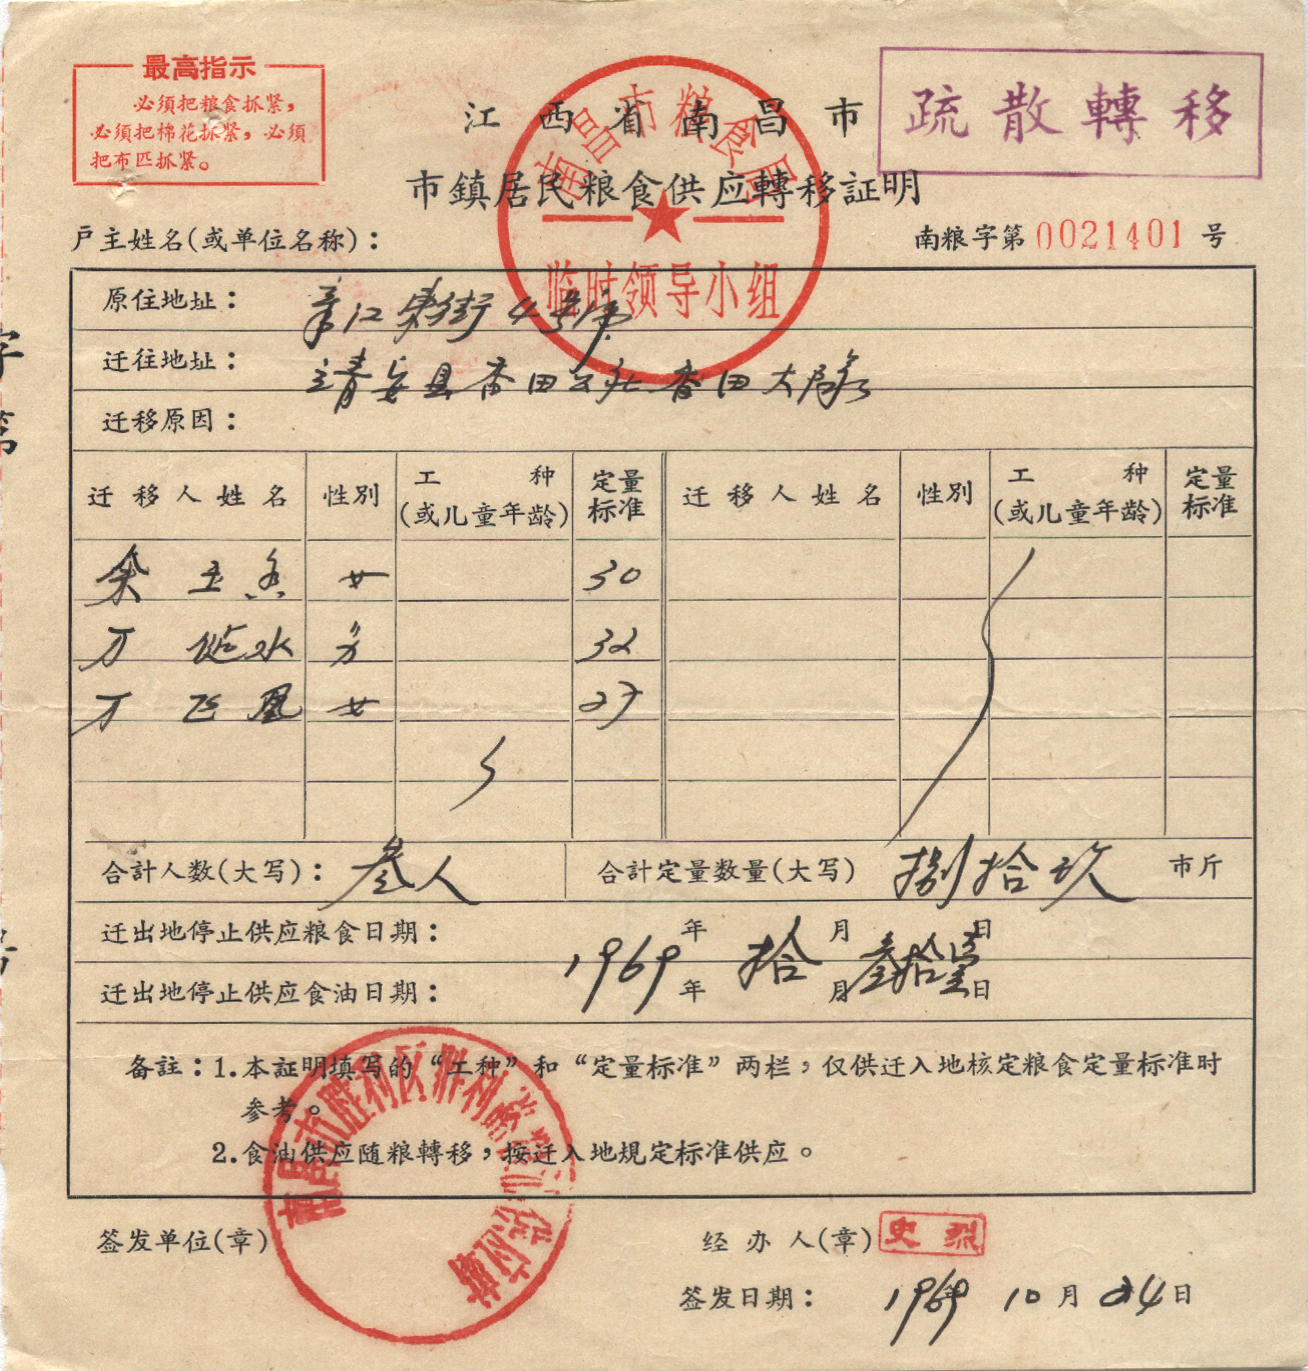 最高指示
必须把粮食抓紧，
必须把棉花抓紧，必须
把布匹抓紧。
疏散轉移
江西省南昌市
市鎮居民粮食供应轉移証明
南昌市粮食局
临时领导小组
户主姓名(或单位名称)：
南粮字第0021401号
原住地址：章江东街4号
迁往地址：靖安县香田公社香田大队
迁移原因：
迁移人姓名 性别 工种(或儿童年龄) 定量标准 迁移人姓名 性别 工种(或儿童年龄) 定量标准
余 女 30
万 水 男 32
万飞凰 女 27
合計人数(大写)：叁人 合計定量数量(大写) 捌拾玖 市斤
迁出地停止供应粮食日期：
1969年拾月叁拾壹日
迁出地停止供应食油日期：
年 月 日
备註：1.本証明填写的“工种”和“定量标准”两栏，仅供迁入地核定粮食定量标准时
参考。
2.食油供应随粮轉移，按迁入地規定标准供应。
南昌市胜利区胜利粮油供应
签发单位(章)
经办人(章) 史
签发日期：1969年10月24日
字第
号